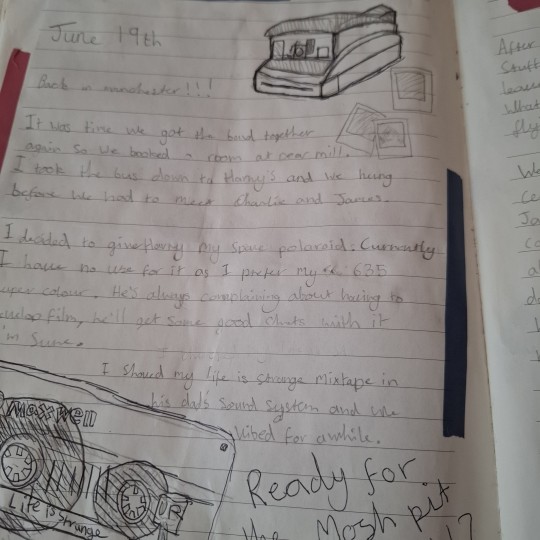 June 19th
Back in manchester!!!
It was time we got the band together
again so we booked a room at pear mill.
I took the bus down to Harry's and we hung
before we had to meet Charlie and James.
I decided to give Harry my spare polaroid. Currently
I have no use for it as I prefer my 635
super colour. He's always complaining about having to
develop film, he'll get some good shots with it
I'm sure.
I shoved my life is strange mixtape in
his dad's sound system and we
vibed for awhile.
Maxwell
Life is Strange
Ready for
the Mosh pit
After
Stuff
What
fly
We